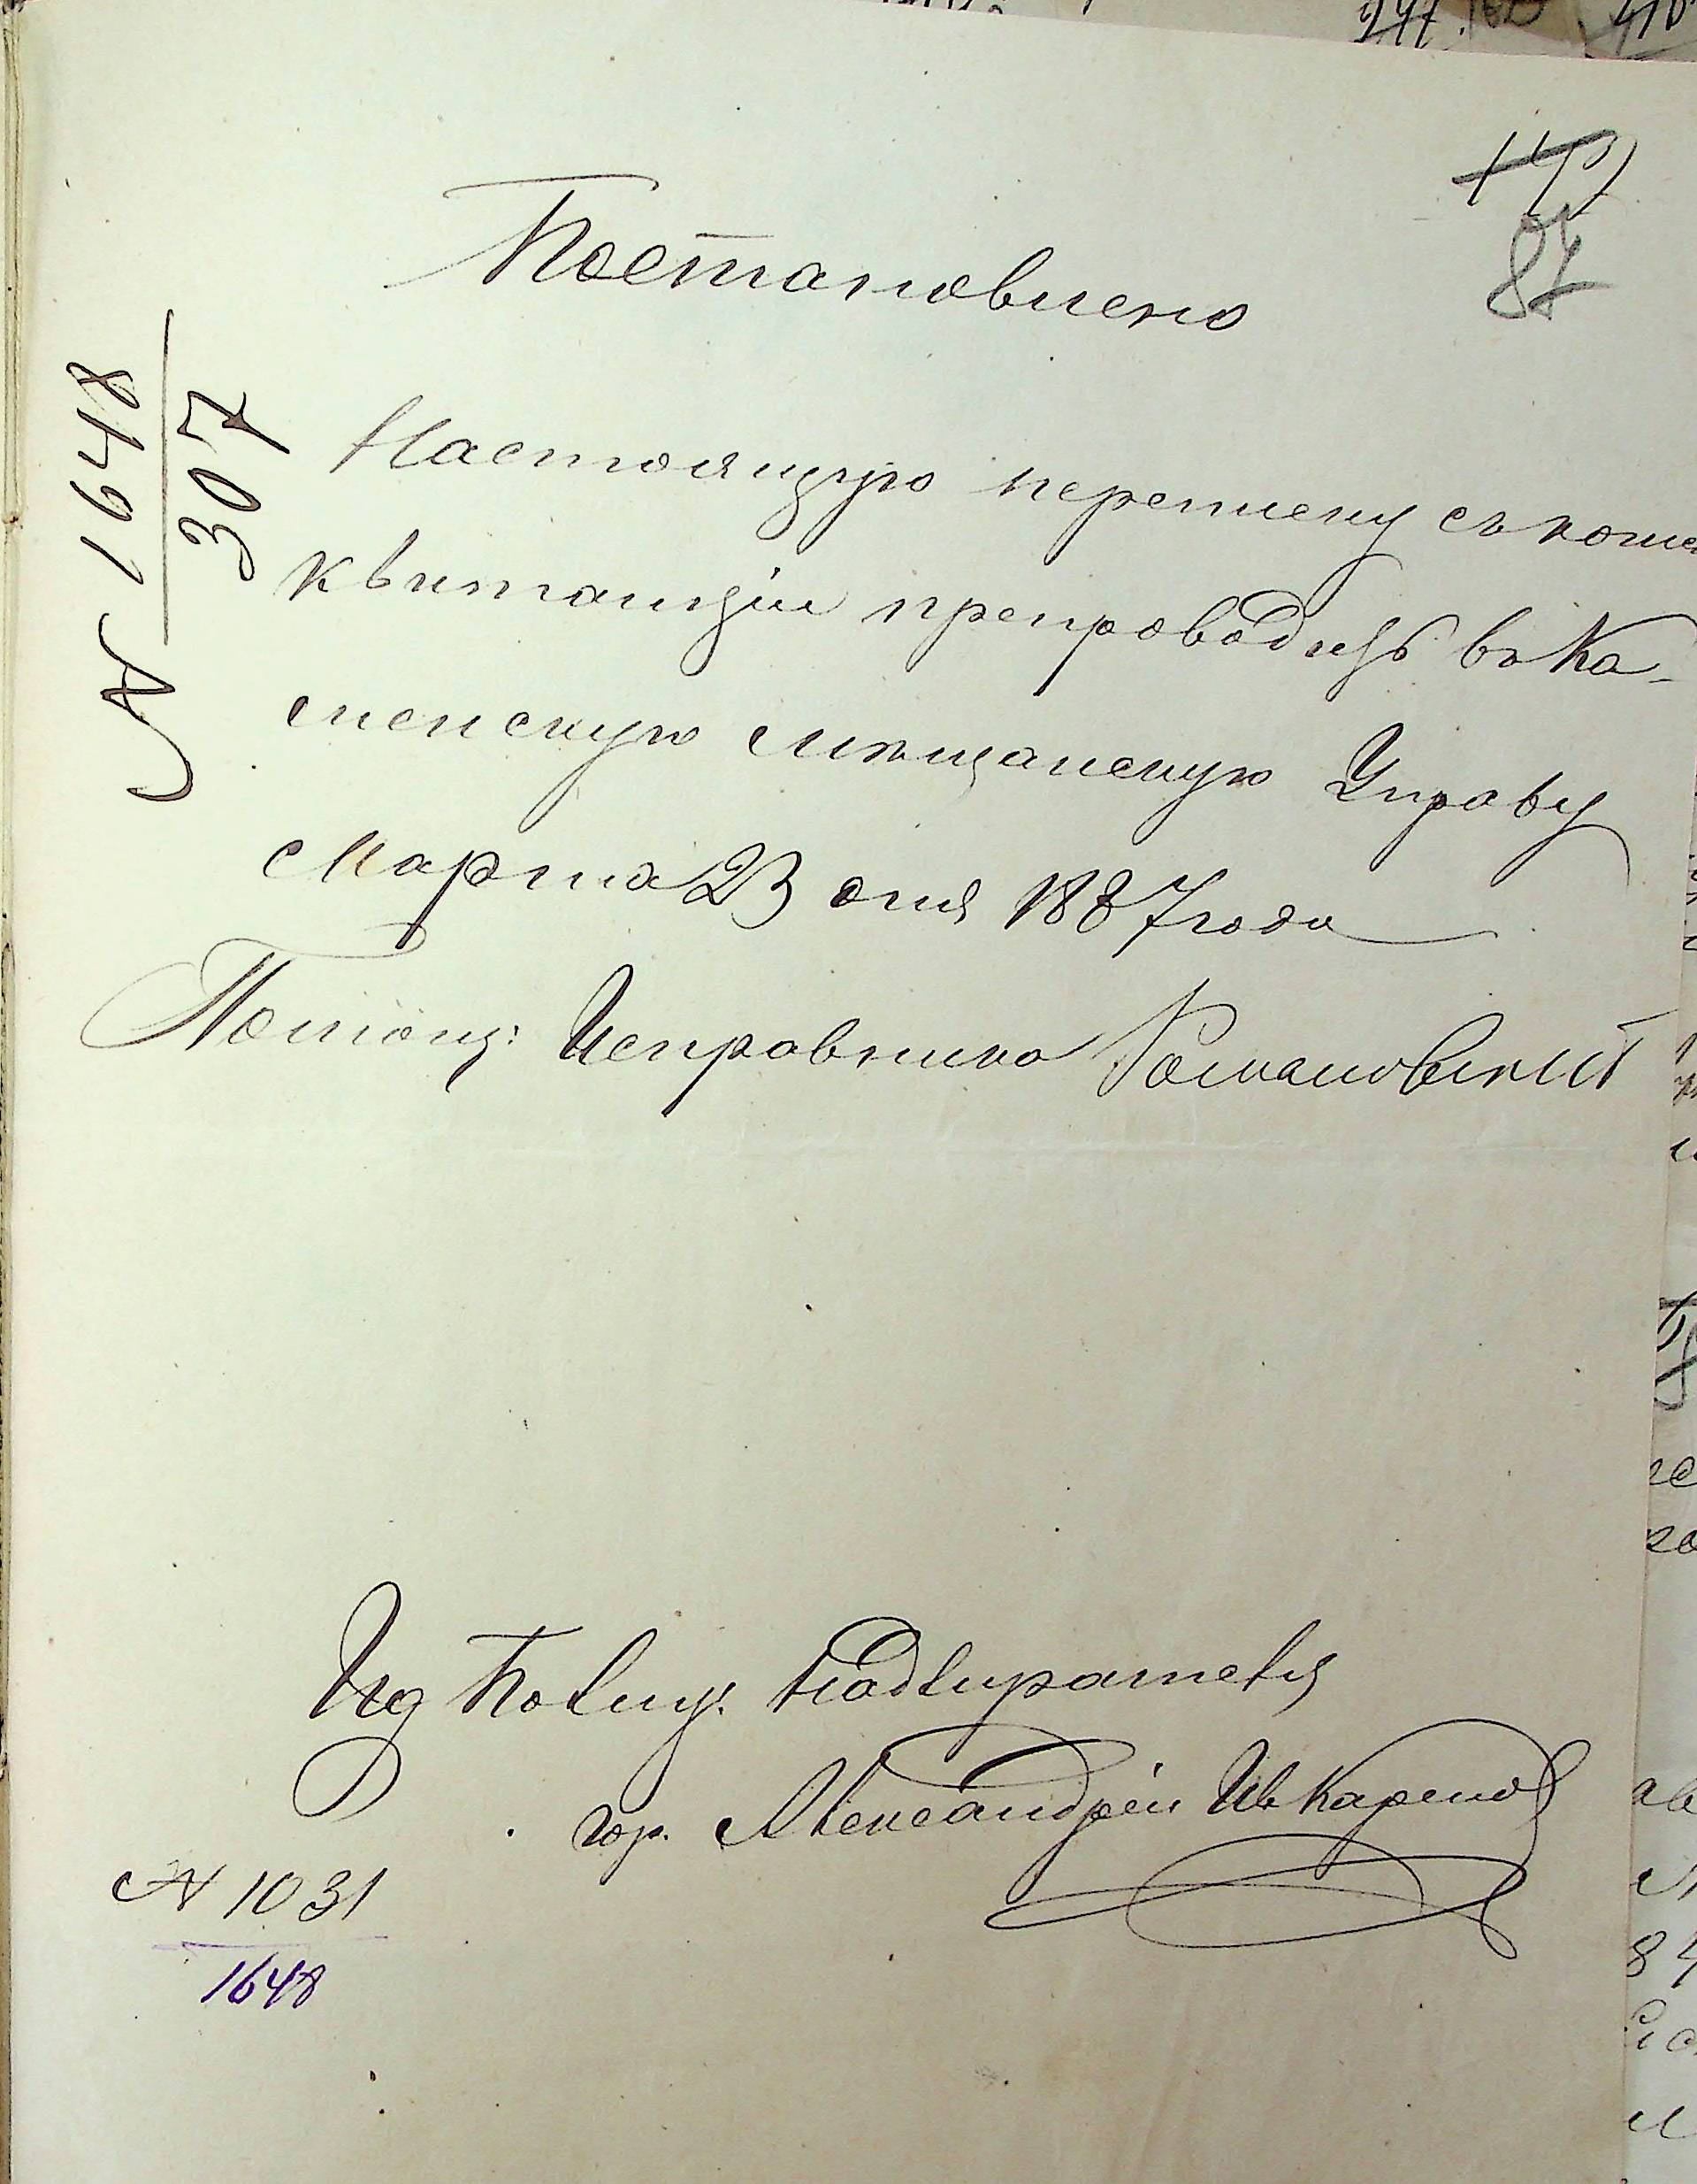 87
Постановлено
№ 1648
307
Настоящую переписку съ копіей
квитанціи препроводить въ Ка-
менскую мѣщанскую Управу
Марта 23 дня 1887 года
Помощ: Исправника Романовскій
Ид Полиц: Надзирателя
гор. Александріи
№ 1031
1648